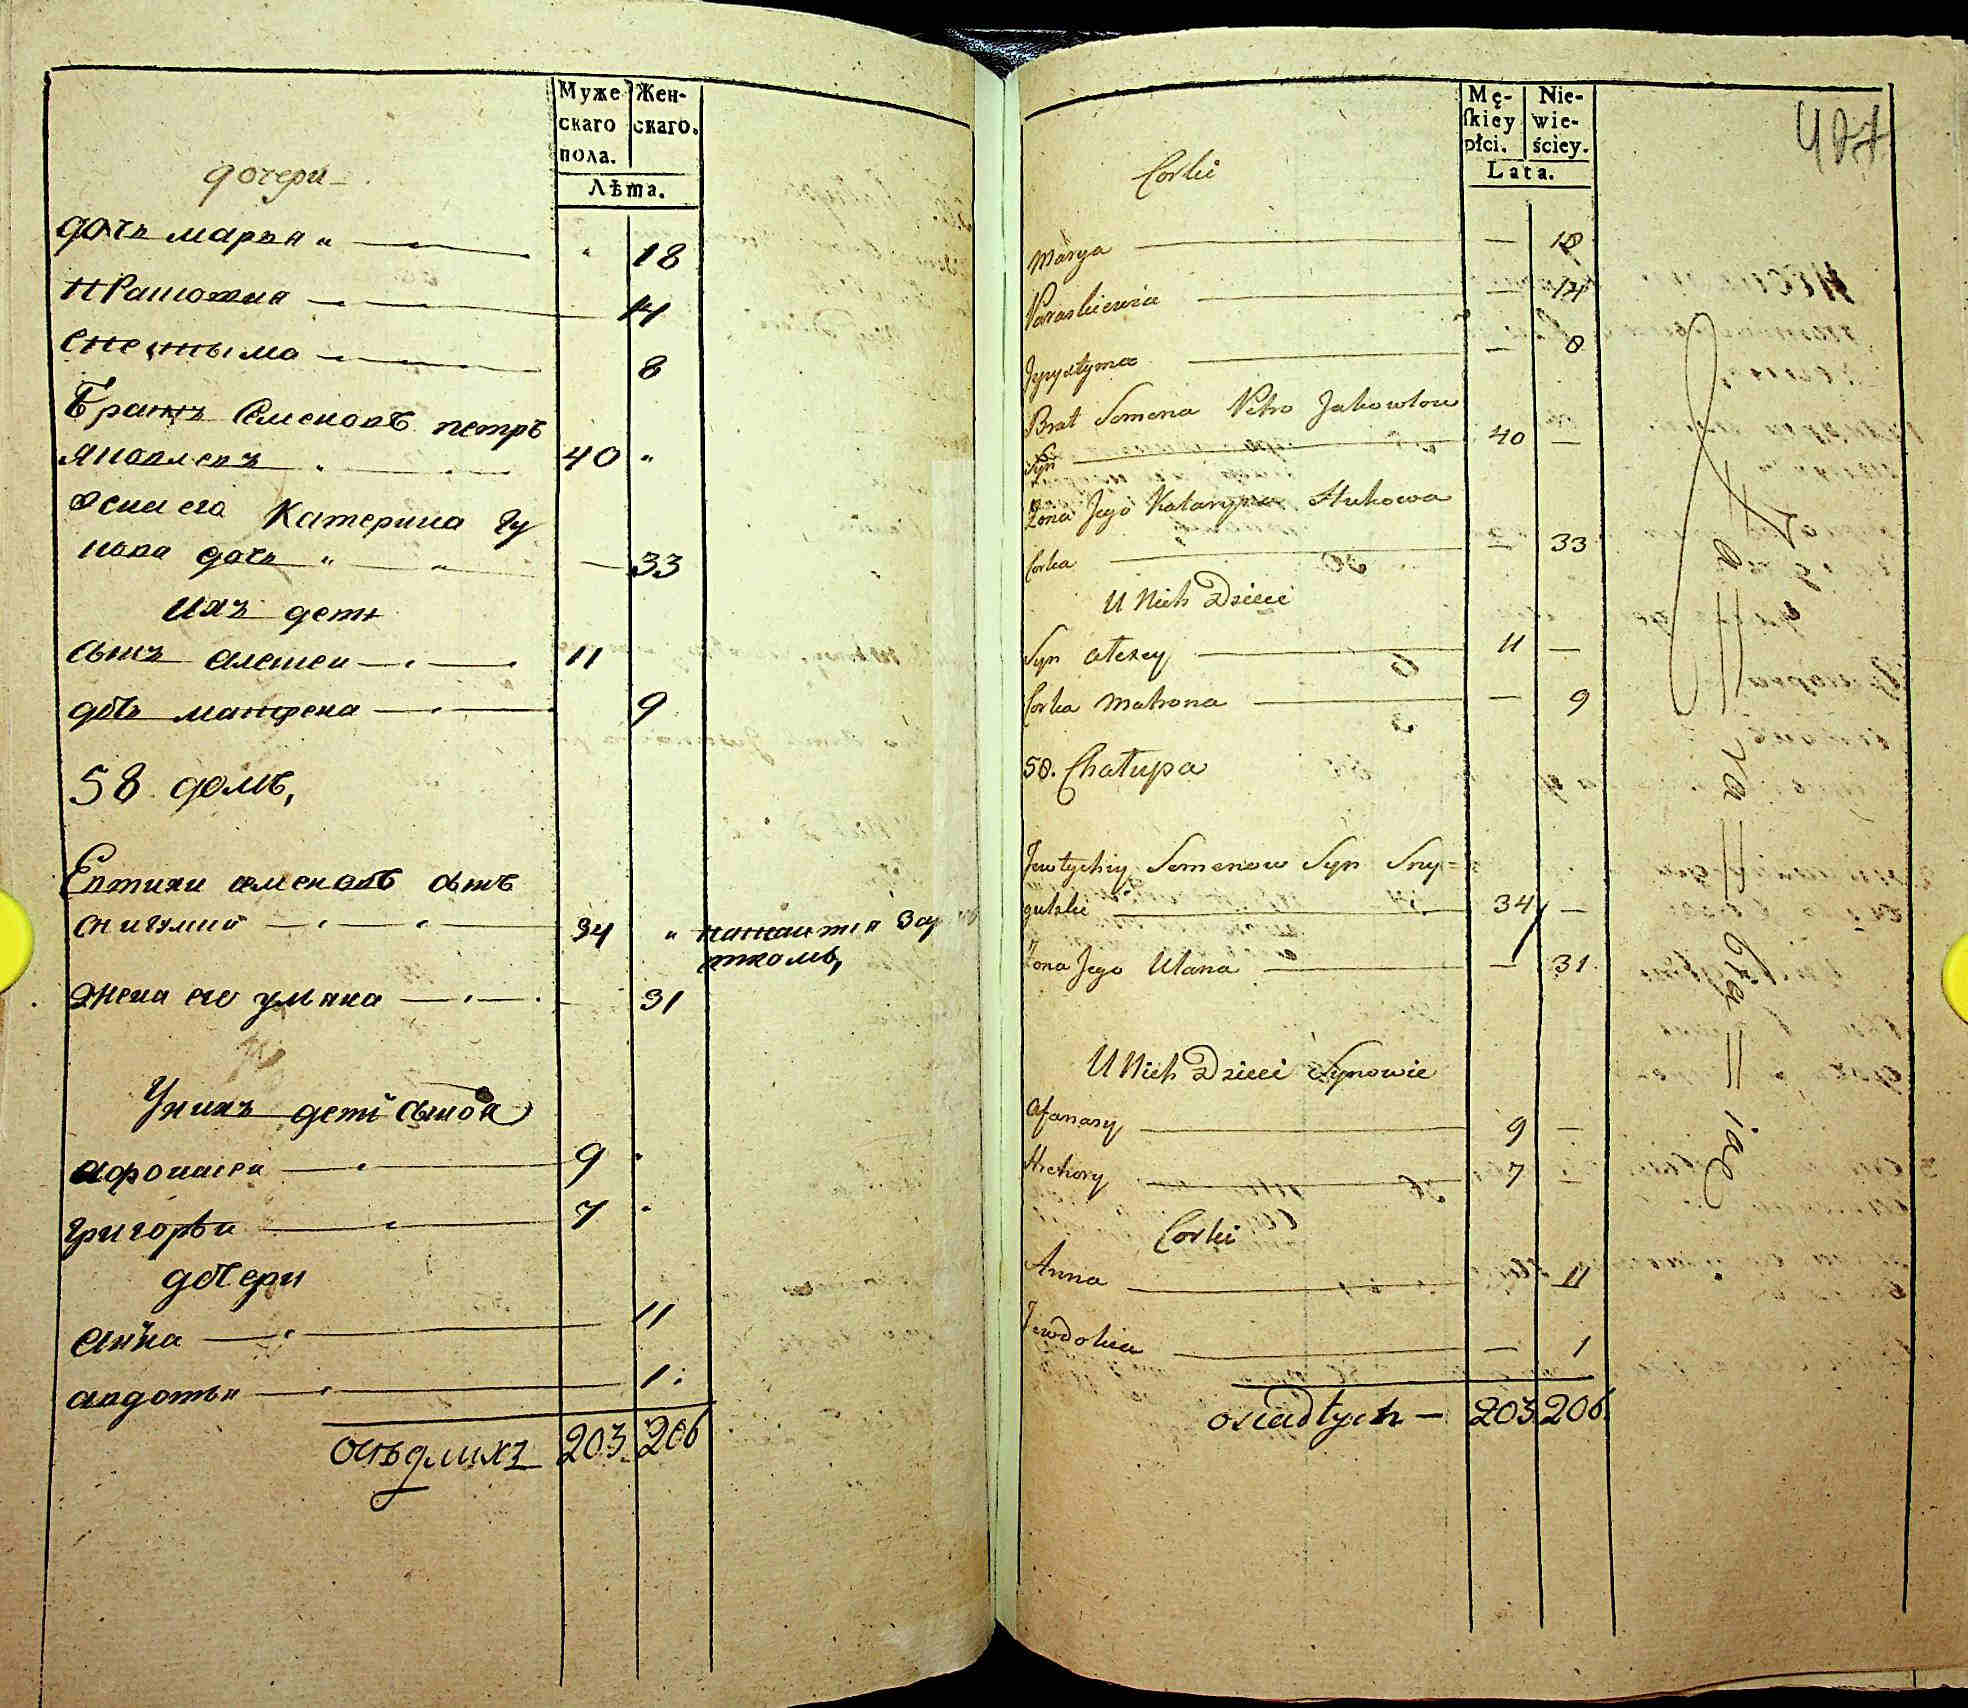 Муже
скаго
пола.
Жен-
скаго.
Лѣта.
дочери
дочь марья 18
14
8
Братъ Семеновъ петръ
Яковлевъ 40
Жена его Катерина Гу
кова дочь 33
ихъ дети
сынъ алексеи 11
дочь матрена 9
58 домъ,
Евтихи семеновъ сынъ
34
жена его ульяна 31
У нихъ дети сыновя
афонасеи 9
григореи 7
дочери
Анна 11
авдотья 1
оседлихъ 203 206
Mę-
skiey
płci.
Nie-
wie-
ściey.
Lata.
407
Corki
Marya — 18
Paraskiewia — 14
— 8
Brat Semena Petro Jakowlow
Syn 40 —
Zona Jego Kataryna Hukowa
Corka — 33
U Nich Dzieci
Syn Alexey 11 —
Corka Matrona — 9
58. Chałupa
Jewtychiy Semenow Syn Sny=
gulski 34 —
Zona Jego Ulana — 31
U Nich Dzieci Synowie
Afanasy 9 —
Hrehory 7 —
Corki
Anna 11
Jewdokia — 1
osiadłych — 203 206